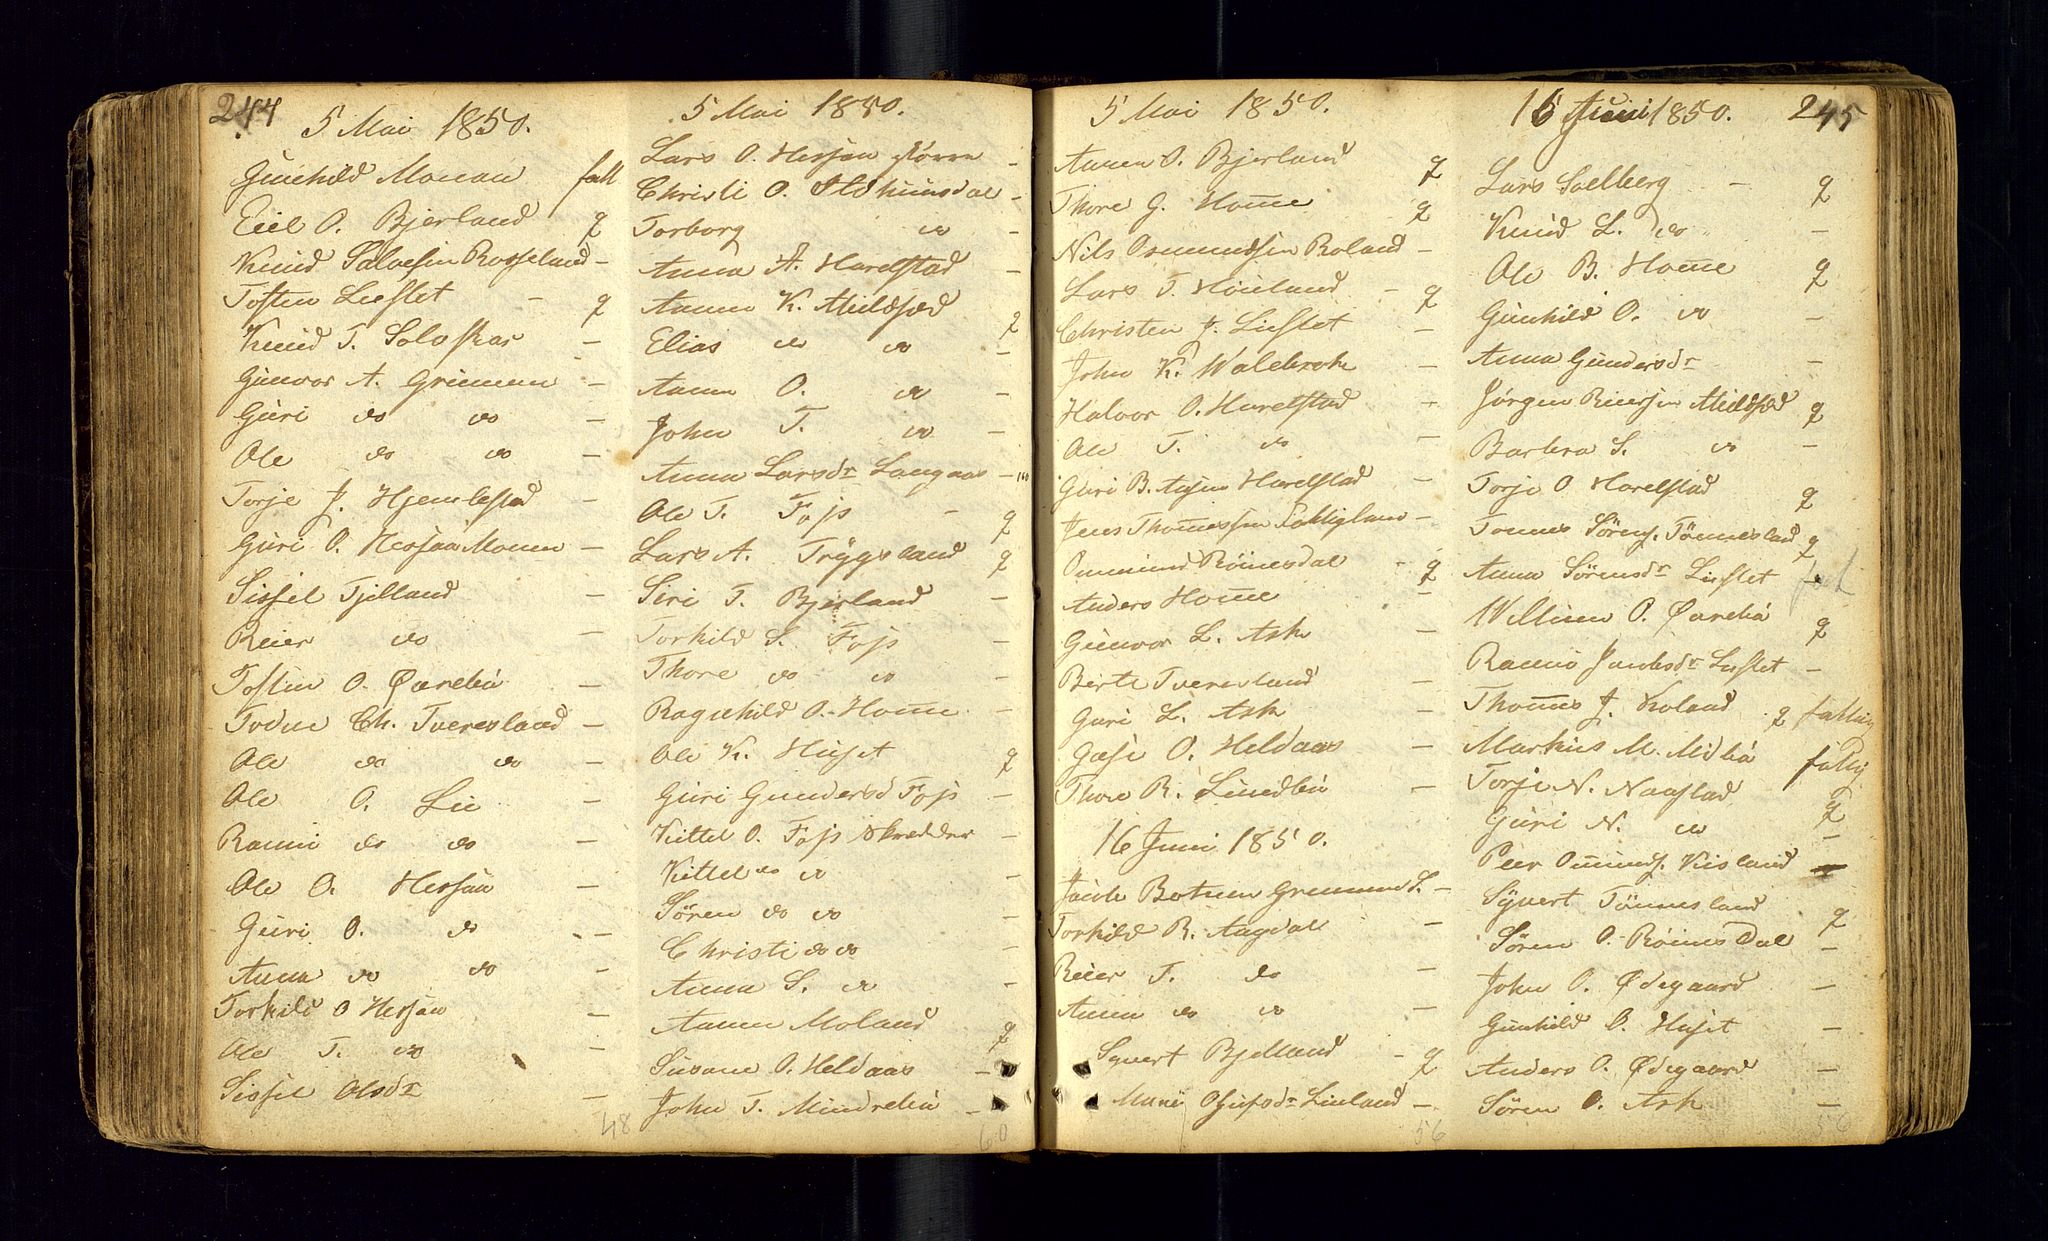 244
5 Mai 1850.
Gunhild Monan fatt
Eiel O. Bjerland g
Knud Salvesen Rosseland -
Tosten Liestet - g
Knud T. Solaskar -
Gunvor A. Griemen -
Guri do do -
Ole do do -
Torje J. Hjemlestad -
Guri O. Hersan Monen -
Sissel Tjelland -
Reier do -
Tosten O. Øvrebø -
Todne Ch. Tveresland -
Ole do do -
Ole O. Lie -
Rannei do do -
Ole O. Hersan -
Guri O. do -
Anna do do -
Torkild O Hersan -
Ole T. do -
Sissel Olsdr -
48
5 Mai 1850.
Lars O. Hersan større -
Christi O. -
Torborg do -
Anna A. Harelstad -
Aanen K. Mildsæd g
Elias do do -
Aanen O. do -
John T. do -
Anna Larsdr Langaas -
Ole T. Fojs - g
Lars A. Tryggsland g
Siri T. Bjerland -
Torkild S. Fojs -
Thore do do -
Ragnhild O. Home -
Ole K. Huset g
Guri Gundersd Fojs -
Kittel O. Fojs Skredder -
Kittel do do -
Søren do do -
Christi do do -
Anna S. do -
Aanen Moland g
Susane O. Heldaas -
John T. Mindrebø -
60
5 Mai 1850.
Aanen O. Bjerland g
Thore G. Home g
Nils Osmundsen Roland -
Lars T. Høieland - g
Christen J. Liestet -
John K. Walebrok -
Halvor O. Harelstad -
Ole T. do -
Guri B. Harelstad -
Jens Thomessen -
Ommund Røinesdal - g
Anders Home -
Gunvor L. Ask -
Berte Tveresland -
Guri L. Ask -
Gese O. Heldaas -
Thore R. Lindbø -
16 Juni 1850.
Jacob Botnen Griemen L. -
Torkild R. Augdal -
Reier T. do -
Anna do do -
Syvert Bjelland - g
Mari Lieland -
56
16 Juni 1850. 245
Lars Solberg - g
Knud L. do -
Ole B. Home g
Gunhild O. do -
Anna Gundersdr -
Jørgen Reiersen Mildsæd g
Barbra S. do -
Torje O Harelstad g
Tønnes Sørens. Tønnesland g
Anna Sørensdr Liestet - fat
Villum O. Øvrebø g
Rannei Jacobsdr Liestet -
Thomes J. Roland g fattig
Markus M. Midbø fattig
Torje N. Naastad g
Guri N. do -
Peer Omunds. Kisland -
Syvert Tønnesland g
Søren O. Røinesdal -
John O. Ødegaard -
Gunhild O. Huset -
Anders O. Ødegaard -
Søren O. Ask -
56